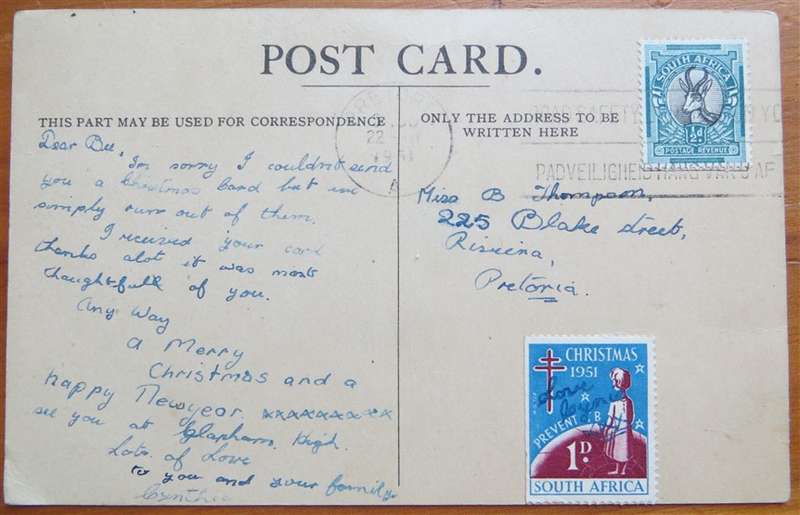 POST CARD.
THIS PART MAY BE USED FOR CORRESPONDENCE
Dear Bee,
I'm sorry I couldn't send
you a Christmas Card but ive
simply run out of them.
I received your card
thanks alot it was most
thoughtfull of you.
Any Way
a Merry
Christmas and a
happy Newyear, xxxxxxxxx
see you at Clapham High.
Lots of Love
to you and your family
Cynthia
ONLY THE ADDRESS TO BE
WRITTEN HERE
Miss B Thompson,
225 Blake Street,
Riviera,
Pretoria.
SOUTH AFRICA
½d
POSTAGE REVENUE
22
1951
ROAD SAFETY
PADVEILIGHEID HANG VAN U AF
CHRISTMAS
1951
Love
PREVENT T.B.
1D.
SOUTH AFRICA